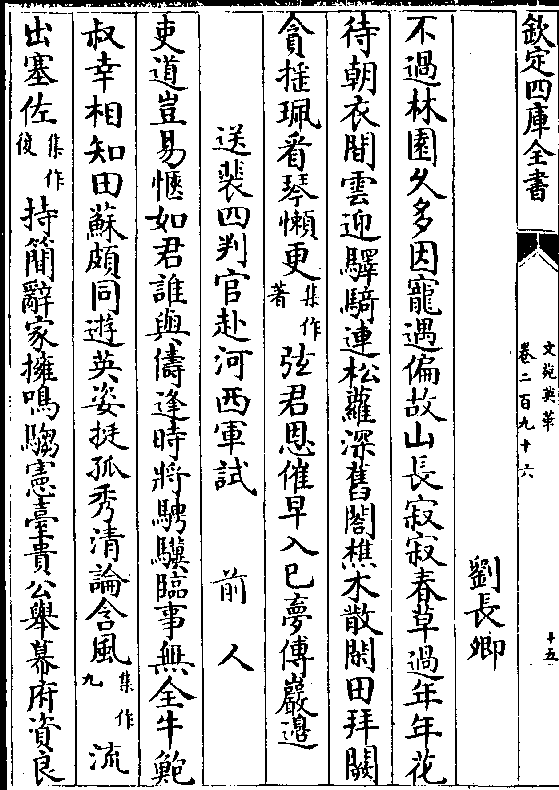 欽定四庫全書
文苑英華
卷二百九十六
十五
劉長卿
不過林園久多因寵遇偏故山長寂寂春草過年年花
待朝衣間雲迎驛騎連松蘿深舊閣樵木散閑田拜闕
貪揺珮看琴懶更集作著弦君恩催早入已夢傅巖邉
送裴四判官赴河西軍試
前人
吏道豈易愜如君誰與儔逢時將騁驥臨事無全牛鮑
叔幸相知田蘇頗同遊英姿挺孤秀清論含風集作九流
出塞佐集作復持簡辭家擁鳴騶憲臺貴公舉幕府資良